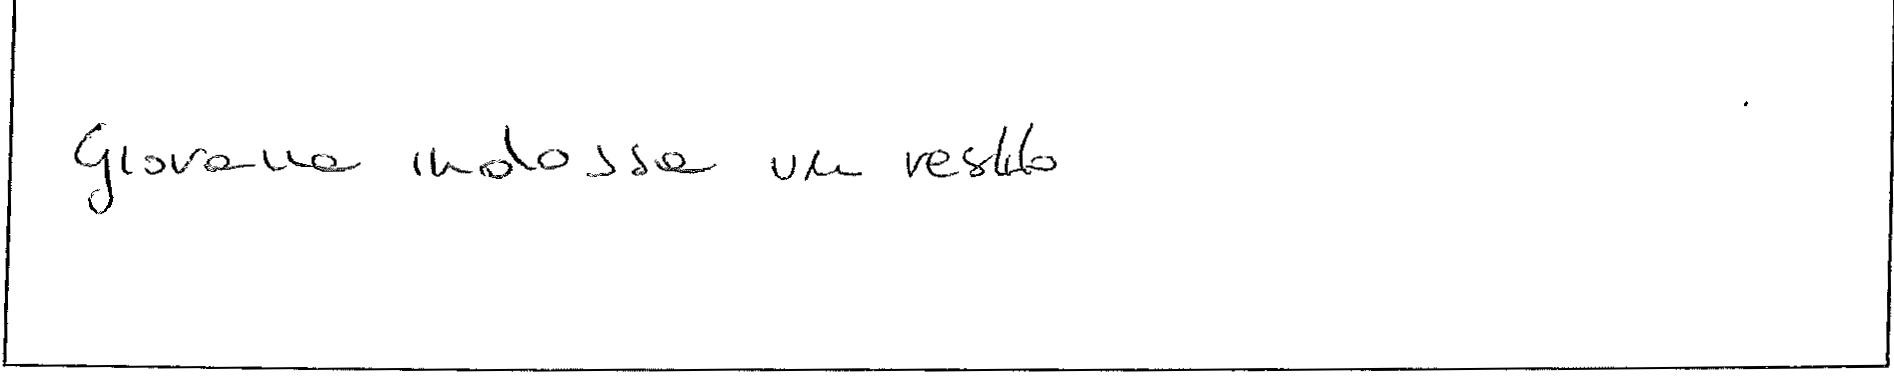 Giovanna indossa un vestito